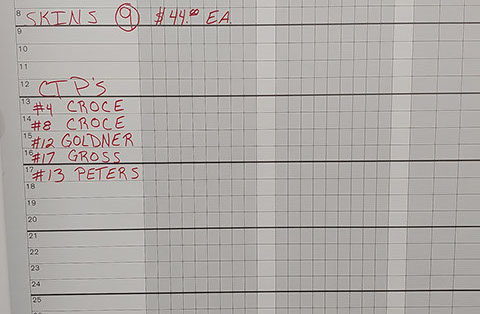 8 SKINS 9 $44.00 EA.
9
10
11
12 CTP's
13 #4 CROCE
14 #8 CROCE
15 #12 GOLDNER
16 #17 GROSS
17 #13 PETERS
18
19
20
21
22
23
24
25